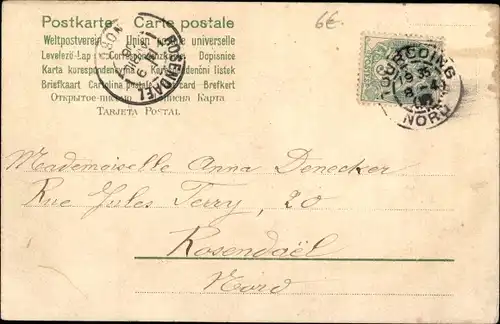 6€
Postkarte Carte postale
Weltpostverein Union postale universelle
Levelező-Lap Correspondenzkarte Dopisnice
Karta korespondencyjna Korespondenčni listek
Briefkaart Cartolina postale Post card Brefkort
Открытое письмо Почтовая Карта
TARJETA POSTAL
ROSENDAËL
NORD
TOURCOING
NORD
Mademoiselle Anna Denecker
Rue Jules Ferry, 20
Rosendaël
Nord